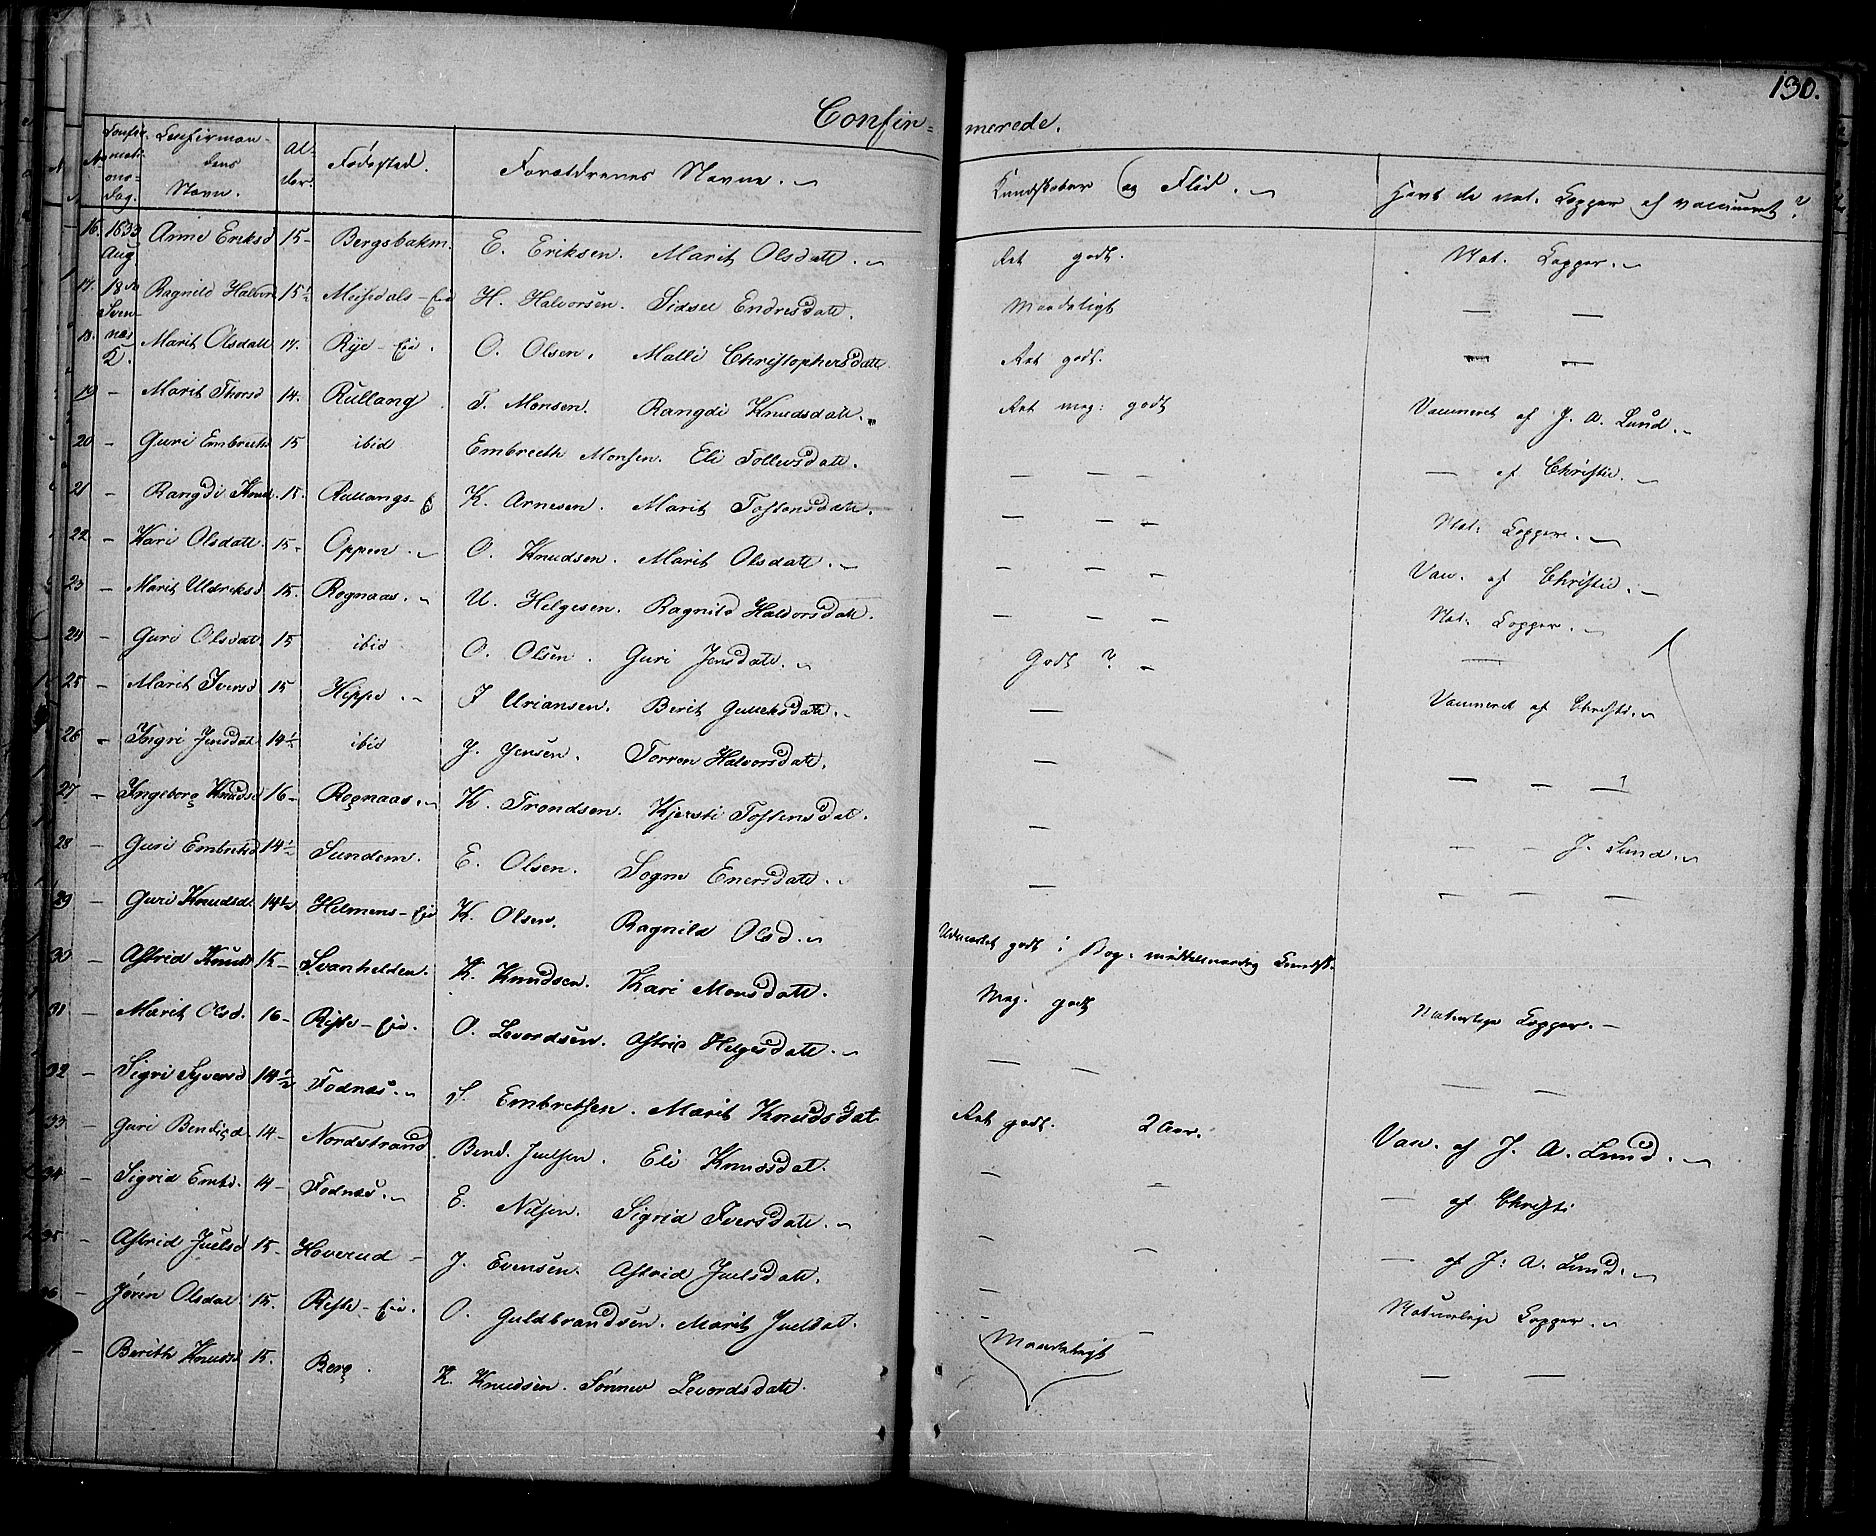 130.
Confir= merede.
No Confirmationsdag. Confirmandens Navn. Alder. Fødested. Forældrenes Navne. Kundskaber og Flid. Havt de nat. Kopper el vaccineret?
16. 1833 Aug Anne Eriksd 15 Bergsbakm. E. Eriksen. Marit Olsdatt. Ret godt. Nat. Kopper.
17. 18de Svennæs K. Ragnild Halvors 15½ Meisedals-Eie H. Halvorsen. Sidsel Endresdatt. Maadeligt — —
18. Marit Olsdatt 17. Rye-Eie. O. Olsen. Malli Christophersdatt. Ret godt. — —
19 - Marit Thorsd 14. Rullang T. Monsen. Rangdi Knudsdatt. Ret meg: godt Vaccineret af J. A. Lund.
20 - Guri Embrethsd 15 ibid Embreth Monsen. Eli Tollevsdatt. — — — — af Christie.
21 - Rangdi Knud. 15. Rullangs-E K. Arnesen. Marit Tostensdatt. — — — Nat. Kopper.
22 - Kari Olsdatt. 15 Oppen. O. Knudsen. Marit Olsdatt. — — — Vac. af Christie.
23 - Marit Uldriksd 15. Rognaas. U. Helgesen. Ragnild Halvorsdatt. — — — Nat. Kopper.
24 - Guri Olsdat. 15 ibid O. Olsen. Guri Jensdatt. Godt? — —
25 - Marit Iversd 15 Hippe. I Uriansen. Berit Gulleksdatt. — Vaccineret af Christi.
26 - Ingri Jensdat 14½ ibid J. Jensen. Torren Halvorsdatt. — — — —
27 - Ingeborg Knudsd 16 Rognaas. K. Trondsen. Kjersti Tostensdat. — — — J. Lund.
28 - Guri Embretsd 14½ Sundem. E. Olsen. Sogne Enersdatt. — — — —
29 - Guri Knudsd. 14½ Helmens-Eie K. Olsen. Ragnild Olsd. Udmærket godt i Bog. middelmaadig Kundsk.
30 - Astrid Knuds 15 Svanhelden. K. Knudsen. Kari Monsdatt. Meg. godt Naturlige Kopper.
31 - Marit Olsd. 16 Riste-Eie. O. Levordsen. Astrid Helgesdatt. — — — —
32 - Sigri Syversd 14½ Fodnæs. S. Embretsen. Marit Knudsdat Ret godt. 2 Aar. Vac. af J. A. Lund.
33 - Guri Bendigd. 14 Nordstrand Bend. Juelsen. Eli Knudsdat. — — — af Christi
34 - Sigrid Embd. 14 Fodnæs. E. Nilsen. Sigrid Iversdatt. — — — af J. A. Lund.
35 - Astrid Juelsd 15 Hoverud J. Evensen. Astrid Juelsdatt. — — Naturlige Kopper.
36 - Jøren Olsdat 15. Riste-Eie. O. Guldbrandsen. Marit Juelsdat. Maadeligt — —
- Berith Knudsd 15. Berg. K. Knudsen. Sønnev Levordsdatt.